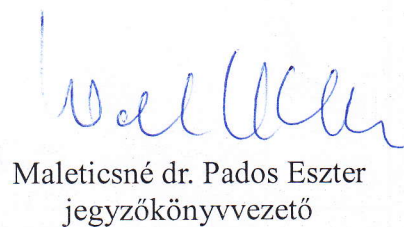 Maleticsné dr. Pados Eszter
jegyzőkönyvvezető